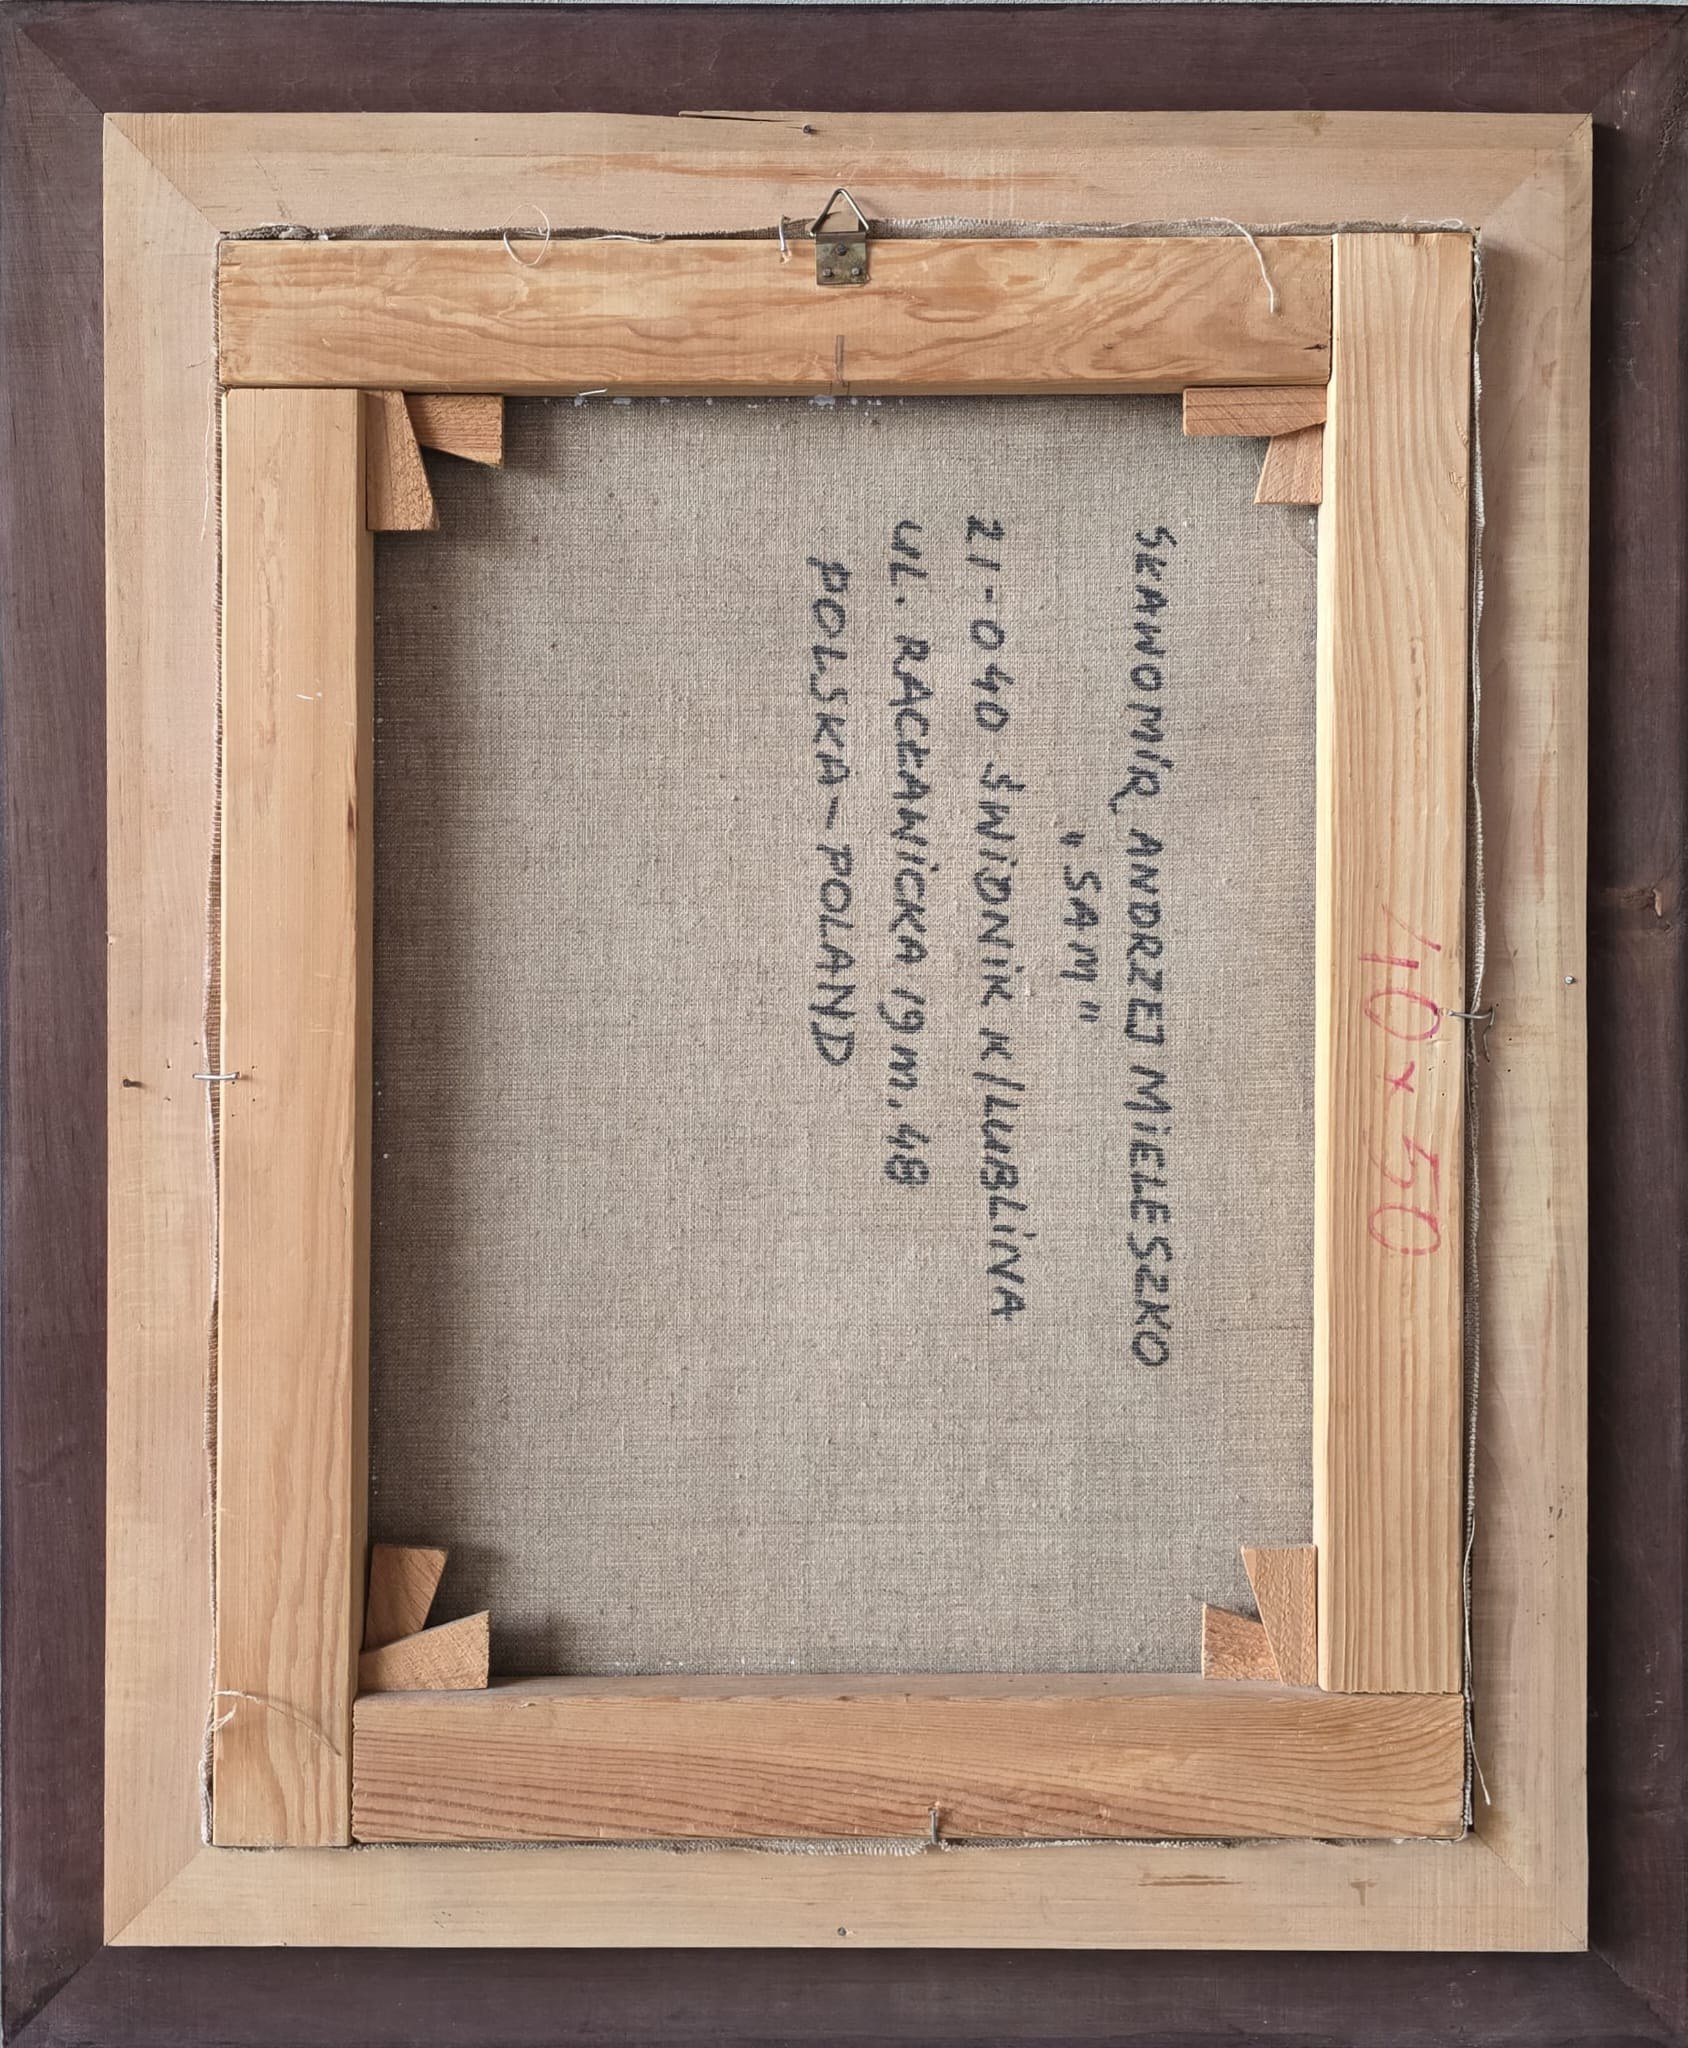 SŁAWOMIR ANDRZEJ MIELESZKO
"SAM"
21-040 ŚWIDNIK K/LUBLINA
UL. RACŁAWICKA 19 m. 48
POLSKA-POLAND
40 x 50